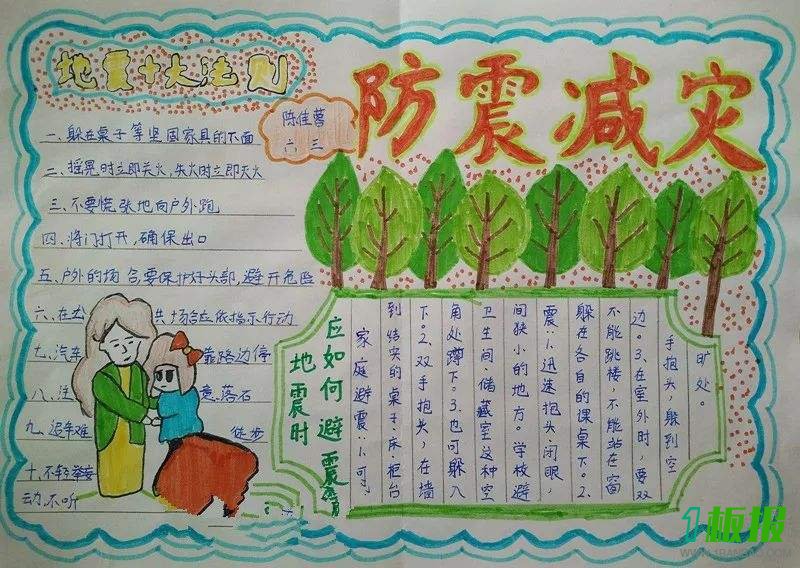 地震十大法则
防震减灾
陈佳蓉
六 三
一、躲在桌子等坚固家具的下面
二、摇晃时立即关火,失火时立即灭火
三、不要慌张地向户外跑
四、将门打开,确保出口
五、户外的场合要保护好头部,避开危险
六、在 共场合应依指示行动
七、汽车 靠路边停
八、注 意落石
九、避难 徒步
十、不轻举妄
动,不听
地震时
应如何避震
家庭避震:1.可
到结实的桌子、床柜台
下。2.双手抱头,在墙
角处蹲下。3.也可躲入
卫生间、储藏室这种空
间狭小的地方。学校避
震:1.迅速抱头、闭眼,
躲在各自的课桌下。2.
不能跳楼,不能站在窗
边。3.在室外时,要双
手抱头,躲到空
旷处。
1板报
WWW.1BANBAO.COM